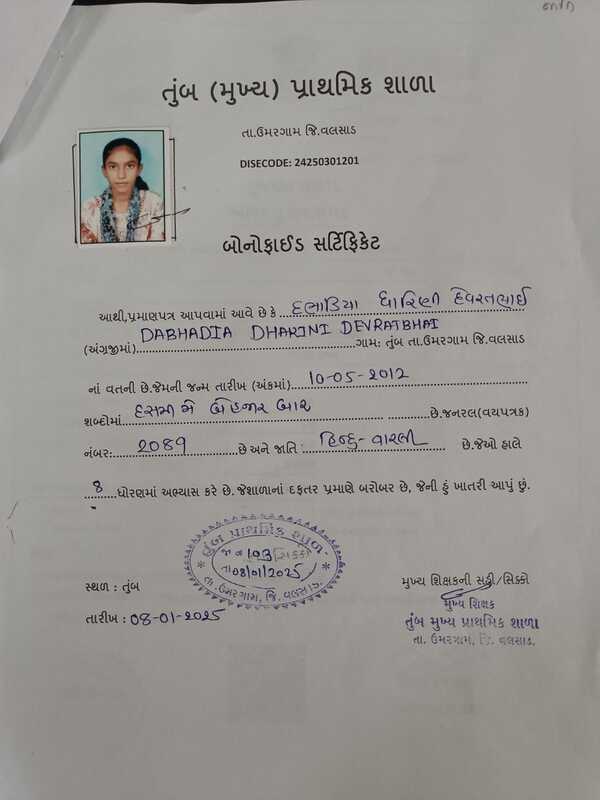 તુંબ (મુખ્ય) પ્રાથમિક શાળા
તા.ઉમરગામ જિ.વલસાડ
DISECODE: 24250301201
બોનોફાઈડ સર્ટિફિકેટ
આથી,પ્રમાણપત્ર આપવામાં આવે છે કે દભાડિયા ધારિણી દેવરતભાઈ
(અંગ્રજીમાં) DABHADIA DHARINI DEVRATBHAI ગામ: તુંબ તા.ઉમરગામ જિ.વલસાડ
નાં વતની છે.જેમની જન્મ તારીખ (અંકમાં) 10-05-2012
શબ્દોમાં દસમી મે બેહજાર બાર છે.જનરલ(વયપત્રક)
નંબર: 2089 છે અને જાતિ : હિન્દુ-વારલી છે.જેઓ હાલે
8 ધોરણમાં અભ્યાસ કરે છે. જેશાળાનાં દફતર પ્રમાણે બરોબર છે, જેની હું ખાતરી આપું છું.
તુંબ પ્રાથમિક શાળા
જા નં 193 સિક્કો
તા 08/01/2025
તા. ઉમરગામ, જિ. વલસાડ.
સ્થળ : તુંબ
તારીખ : 08-01-2025
મુખ્ય શિક્ષકની સહી/સિક્કો
મુખ્ય શિક્ષક
તુંબ મુખ્ય પ્રાથમિક શાળા
તા. ઉમરગામ, જિ. વલસાડ.